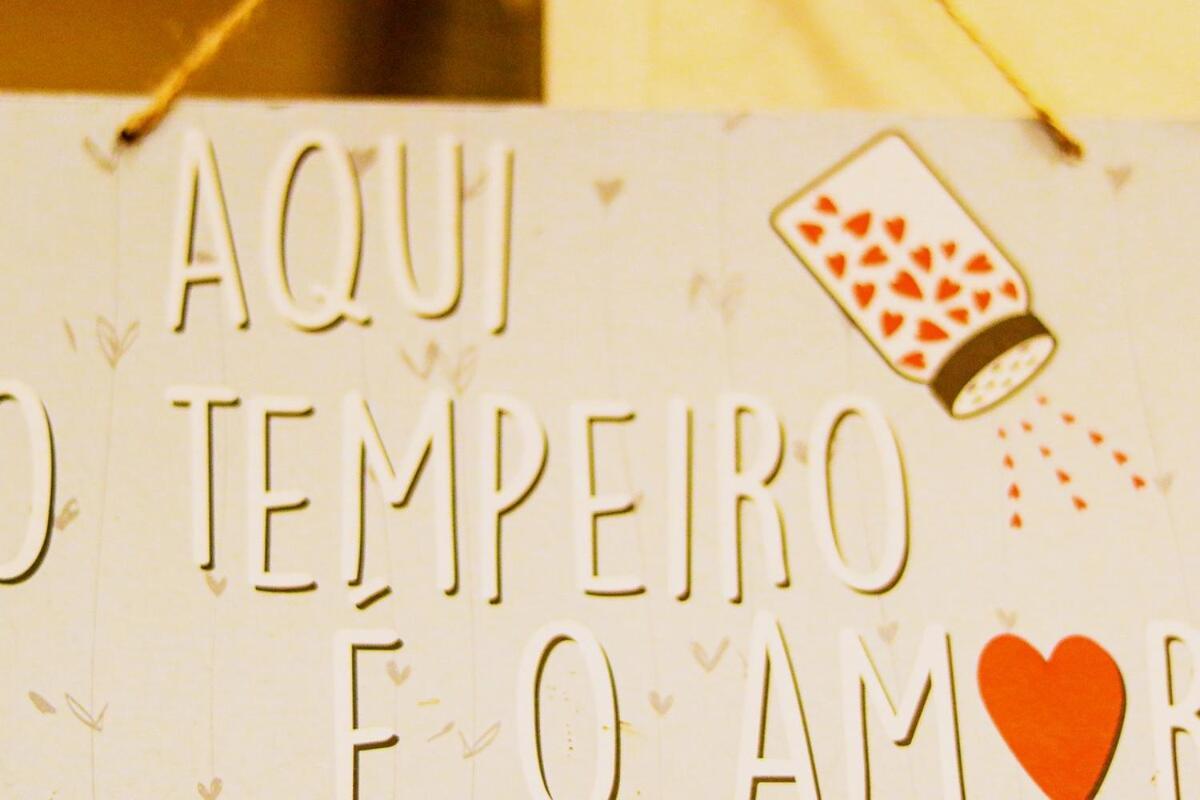 AQUI
O TEMPEIRO
É O AMOR